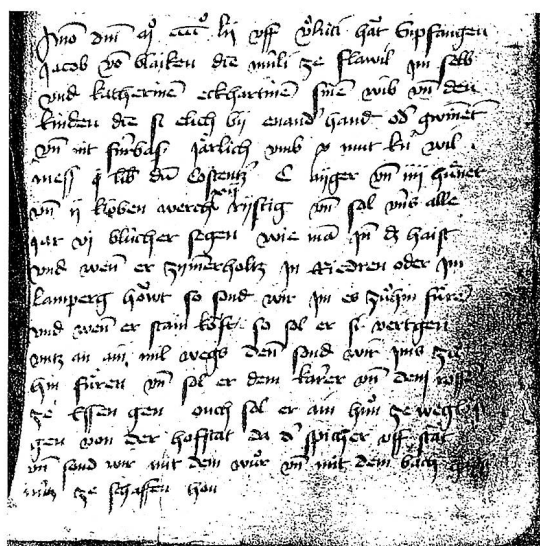 Anno dm mo cccco lij vff vdlrici hat Enpfangen
Jacob vo blaiken die müli ze flawil im selb
vnd katherinē eckhartinē sinē wib vn den
kinden die si elich bij enand hand od gwinēt
vn nit fürbas Järlich vmb v mut kn wil
mess lib da Costentz C aijger vn iiij hüner
vn ij kloben werch xij rijstig vn sol vns alle
jar vj blöcher segen wie mā jn dz haist
vnd wen er zymerholtz jn Riedren oder im
lamperg howt so sond wir im es zuhin füre
vnd wen er stain koft so sol er si vertgen
vntz an ain mil wegs den sond wir jms zu
hin füren vn sol er dem karer vn dem rosse
ze Essen gen ouch sol er ain hun ze weglosi
gen von der hofstat da d spicher vff stat
vn sond wir mit dem wur vn mit dem bach
nütz ze schaffen hon